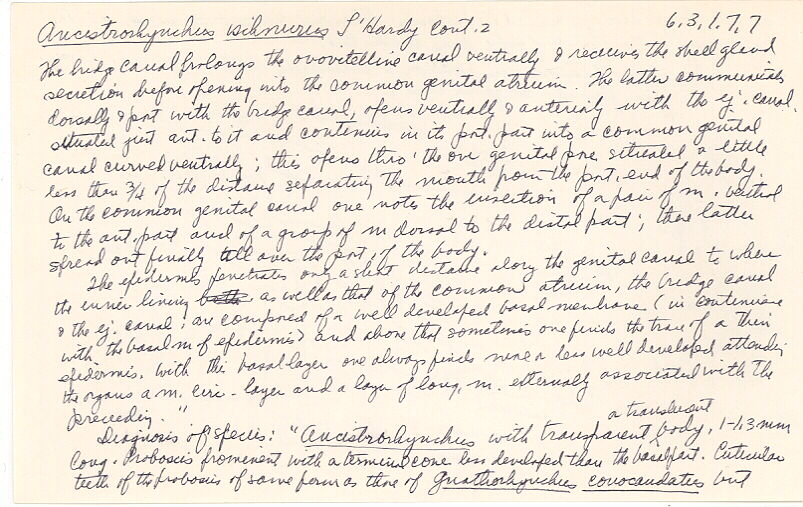 Ancistrorhynchus ischnurus L'Hardy Cont. 2 6,3,1,7,7
The bridge canal prolongs the ovovitelline canal ventrally & receives the shell gland
secretion before opening into the common genital atrium. The latter communicates
dorsally & post with the bridge canal, opens ventrally & anteriorly with the ej. canal.
situated just ant. to it and continues in its post. part into a common genital
canal curved ventrally; this opens thro' the one genital pore situated a little
less than 3/4 of the distance separating the mouth from the post. end of the body.
On the common genital canal one notes the insertion of a pair of m. ventral
to the ant. part and of a group of m dorsal to the distal part; these latter
spread out finally all over the post, of the body.
The epidermis penetrates only a short distance along the genital canal to where
the inner lining as well as that of the common atrium, the bridge canal
& the ej. canal; are composed of a well developed basal membrane (in continuance
with the basal m of epidermis) and above that sometimes one finds the trace of a thin
epidermis. With this basal layer one always finds more or less well developed attending
the organs a m. circ. layer and a layer of long. m. externally associated with the
preceding."
Diagnosis of species: "Ancistrorhynchus with transparent a translucent body, 1-1.3 mm
long. Proboscis prominent with a terminal cone less developed than the basal part. Cuticular
teeth of the proboscis of same form as those of Gnathorhynchus conocaudatus but